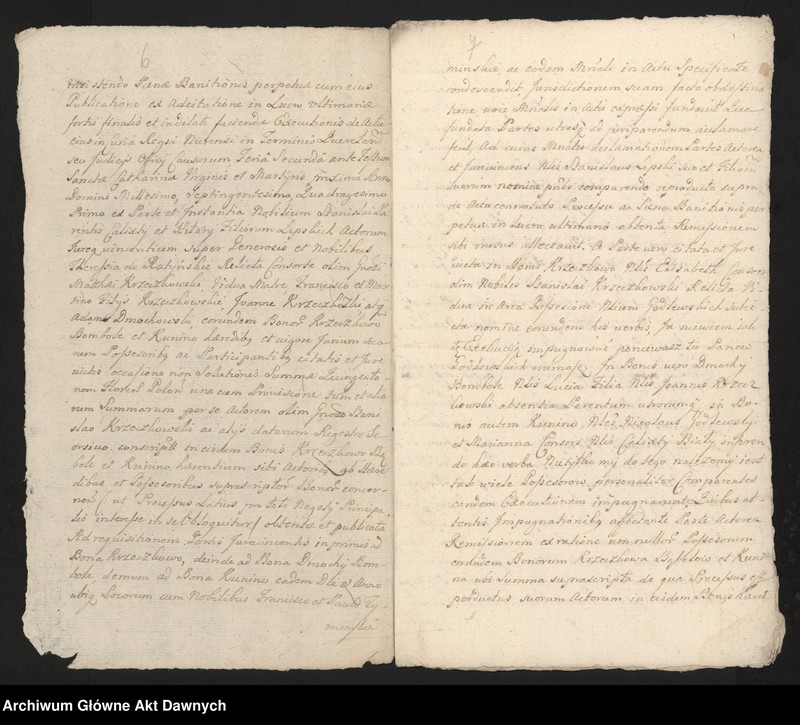 6
insistendo Pœnæ Banitionis perpetuæ cum eius
Publicatione ex Adcitatione in Lucro ultimariæ
fortis finalis et indilate faciendæ Executionis de Actu
eius in Curia Regia Nurensi in Terminis
seu Judicij Officij Causarum Feria Secunda ante Festum
Sanctæ Catharinæ Virginis et Martyris proxima Anno
Domini Millesimo, Septingentesimo, Quadragesimo
Primo ex Parte et Instantia Nobilium Stanislai Pa
rentis Calixti et Filiorum Lipskich Actorum
Jurequvincentium super Generosis et Nobilibus
Theressia de Ratynskie Relicta Consorte olim Gnosi
Matthæi Krzeczkowski, Vidua Matre Francisco et Mar
tino Filijs Krzeczkowskij, Joanne Krzeczkowski atq
Adamo Dmochowski, eorundem Bonor Krzeczkowo
Bombole et Kunino hæredibq et vigore Junium sua
rum Possessoribq ac Participantibq citatis et Jure
victis occasione non Solutionis Summæ Quingento
rum Floren Polon una cum Provisione tum et alia
rum Summarum per se Actorem olim Gnoso Stani
slao Krzeczkowski ac alijs datarum Regestro
conscript in eisdem Bonis Krzeczkowo
bole et Kunino hærentium sibi Actoria ab Hære
dibus et Possessoribus suprascriptor Bonor concer
nen ut Processus Latius in toto Negotij Principa
lis interesse in se Obloquitur obtenta et publicata
Ad requisitionem Partis Jurevincentis in primis ad
Bona Krzeczkowo, deinde ad Bona Dmochij Bom
bole, demum ad Bona Kunino eadem Die et Anno
ubiq Locorum cum Nobilibus Francisco et Paulo Ty
minski
7
minskie, ac eodem Mnrli in Actu Specificato
condescendit Jurisdictionem suam facto obdestina
tione voce Mnrlis in Actis expressi fundavit Qua
fundata Partes utrasq ad præparendum acclamare
fecit, Ad cuius Mnrlis acclamationem Partes Actorea
et Jurevincens Nlis Stanislaus Lipski suo et Filiorum
suorum nomine pntr comparendo reproducto supra
de Actu connotato Processu ac Pœna Banitionis per
petuæ in Lucro ultimario obtenta Remissionem
sibi rursus affectavit, A Parte vero citata et Jure
victa in Bonis Krzeczkowo Nlis Elisabeth Consors
olim Nobilis Stanislai Krzeczkowski Relicta Vi
dua in Area Possessione Nlium Godlewskich subie
cta nomine eorundem his verbis, Ja niewiem iak
tę Exekucyią impugnować ponieważ tu Panow
Godlewskich niemasz. In Bonis vero Dmochy
Bombole Nlis Lucia Filia Nlis Joannis Krzecz
kowski absentia Parentum utrorumq in Bo
nis autem Kunino Nles Nicolaus Godlewski
et Marianna Consors Nlis Calixti Biały inferen
do hæc verba Nietylko my do tego należemy iest
tak wiele Possessorow, personaliter Comparentes
eandem Executionem impugnarunt Quibus at
tentis Impugnationibq affectante Parte Actorea
Remissionem ex ratione non nullor Possessorum
eorundem Bonorum Krzeczkowa et Kuni
na ubi Summa suprascripta de qua Processus est
perductus suorum Actorum in eisdem Bonis hæret
Archiwum Główne Akt Dawnych